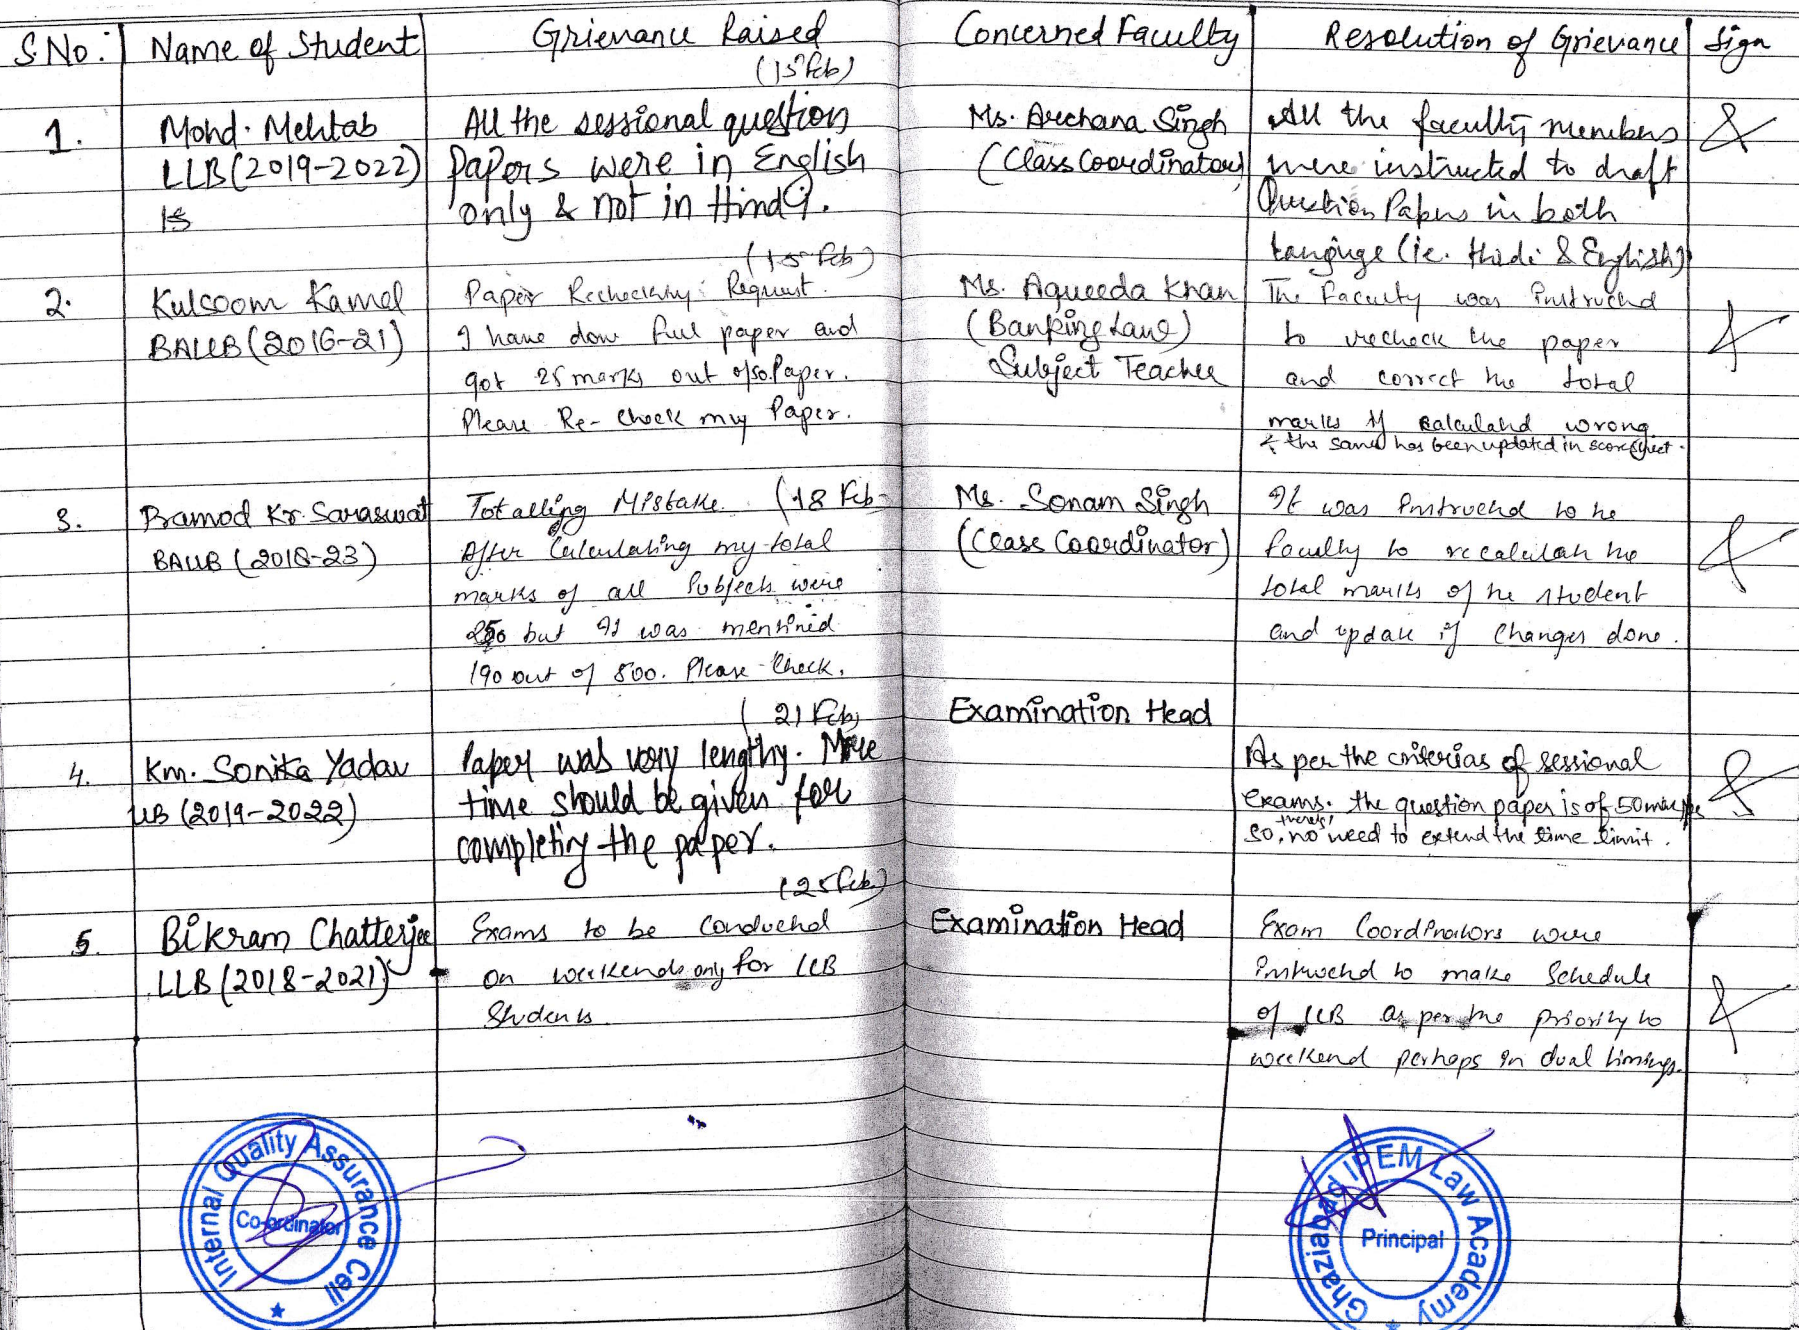 S.No.
Name of Student
Grievance Raised
Concerned Faculty
Resolution of Grievance
Sign
(15 Feb)
1.
Mohd. Mehtab
LLB(2019-2022)
All the sessional question
papers were in English
only & not in Hindi.
Ms. Archana Singh
(Class Coordinator)
All the faculty members
were instructed to draft
Question Papers in both
(ie. Hindi & English)
(15 Feb)
2.
Kulsoom Kamal
BALLB(2016-21)
Paper Rechecking Request.
I have done full paper and
got 25 marks out of 50. Paper.
Please Re-Check my Paper.
Ms. Aqueeda Khan
(Banking Law)
Subject Teacher
The Faculty was instructed
to recheck the paper
and correct the total
marks if calculated wrong
& the same has been updated in scoresheet.
3.
Pramod Kr. Saraswat
BALLB (2018-23)
Totalling Mistake. (18 Feb
After Calculating my total
marks of all subjects were
250 but it was mentined
190 out of 500. Please Check.
Ms. Sonam Singh
(Class Coordinator)
It was instructed to the
faculty to recalculate the
total marks of the student
and update if changes done.
(21 Feb)
4.
Km. Sonika Yadav
LLB (2019-2022)
Paper was very lengthy. More
time should be given for
completing the paper.
Examination Head
As per the criterias of sessional
exams. the question paper is of 50 marks
so, there's no need to extend the time limit.
(25 Feb)
5.
Bikram Chatterjee
LLB (2018-2021)
Exams to be conducted
on weekends only for LLB
Students.
Examination Head
Exam Coordinators were
instructed to make Schedule
of LLB as per the priority to
weekend perhaps in dual timings.
Internal Quality Assurance Cell
Co-ordinator
IPEM Law Academy
Ghaziabad
Principal